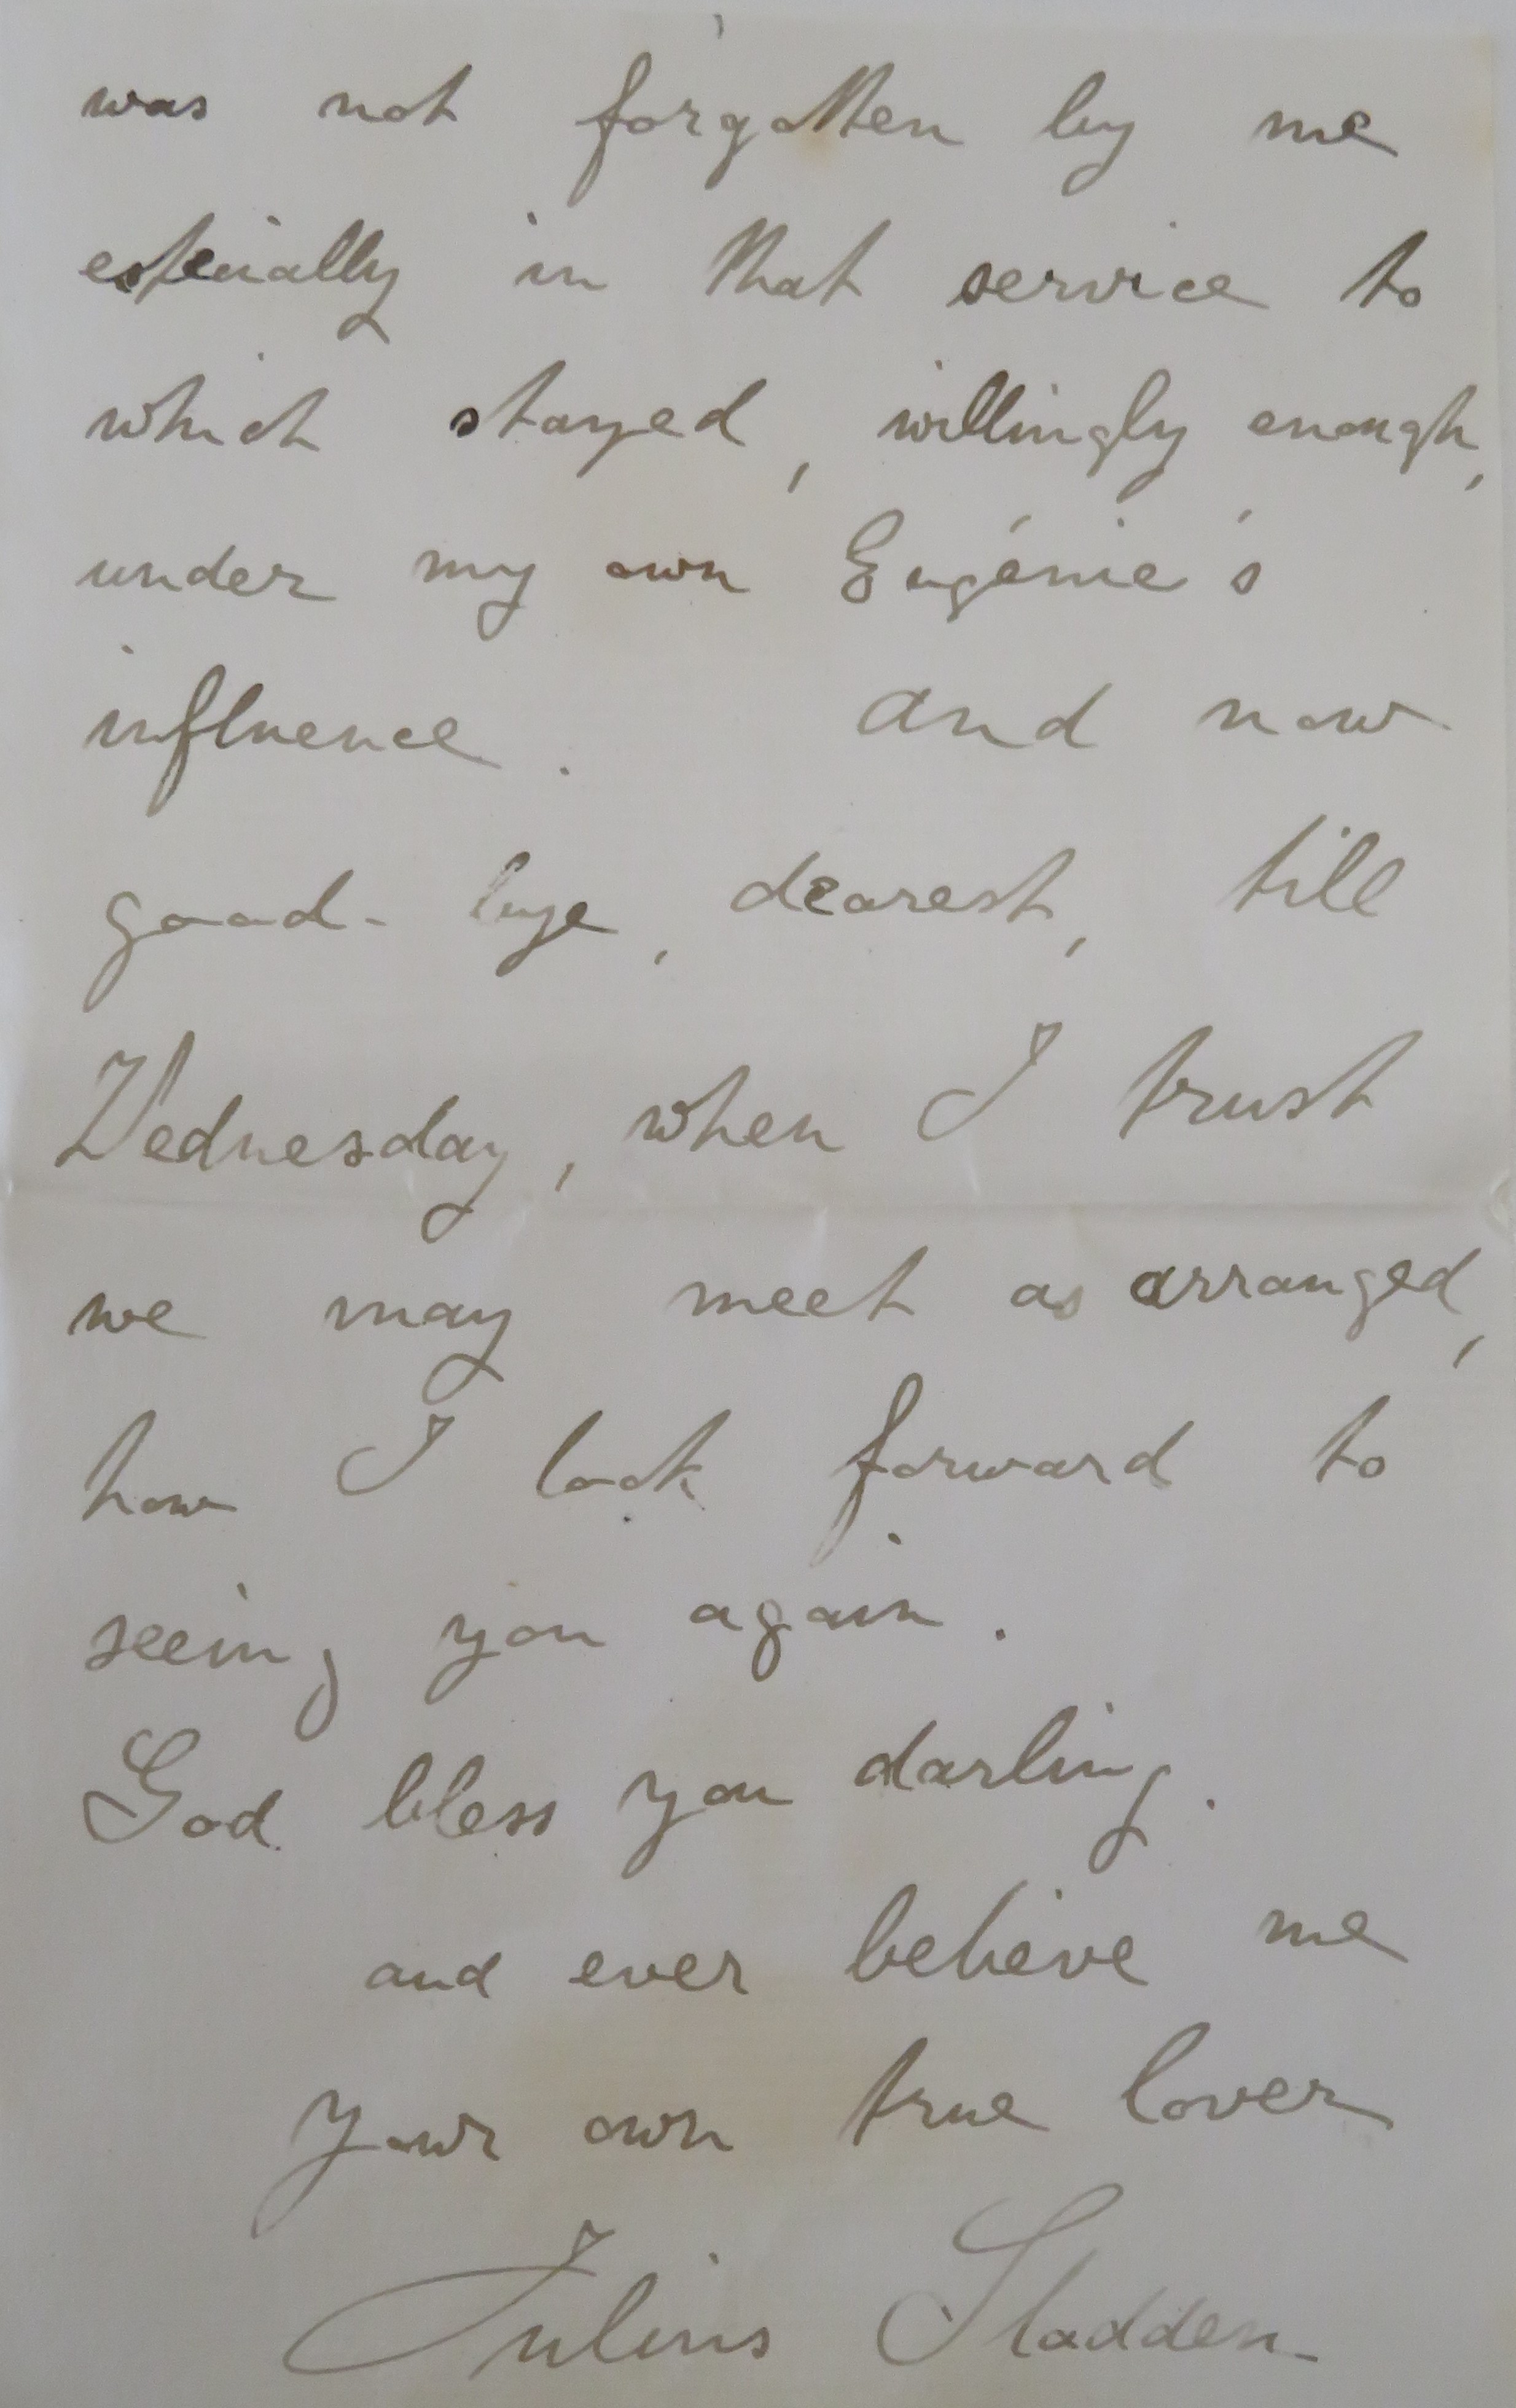 was not forgotten by me
especially in that service to
which stayed, willingly enough,
under my own Eugénie's
influence. And now
good-bye, dearest, till
Wednesday, when I trust
we may meet as arranged,
how I look forward to
seeing you again.
God bless you darling.
and ever believe me
Your own true lover
Julius Sladden